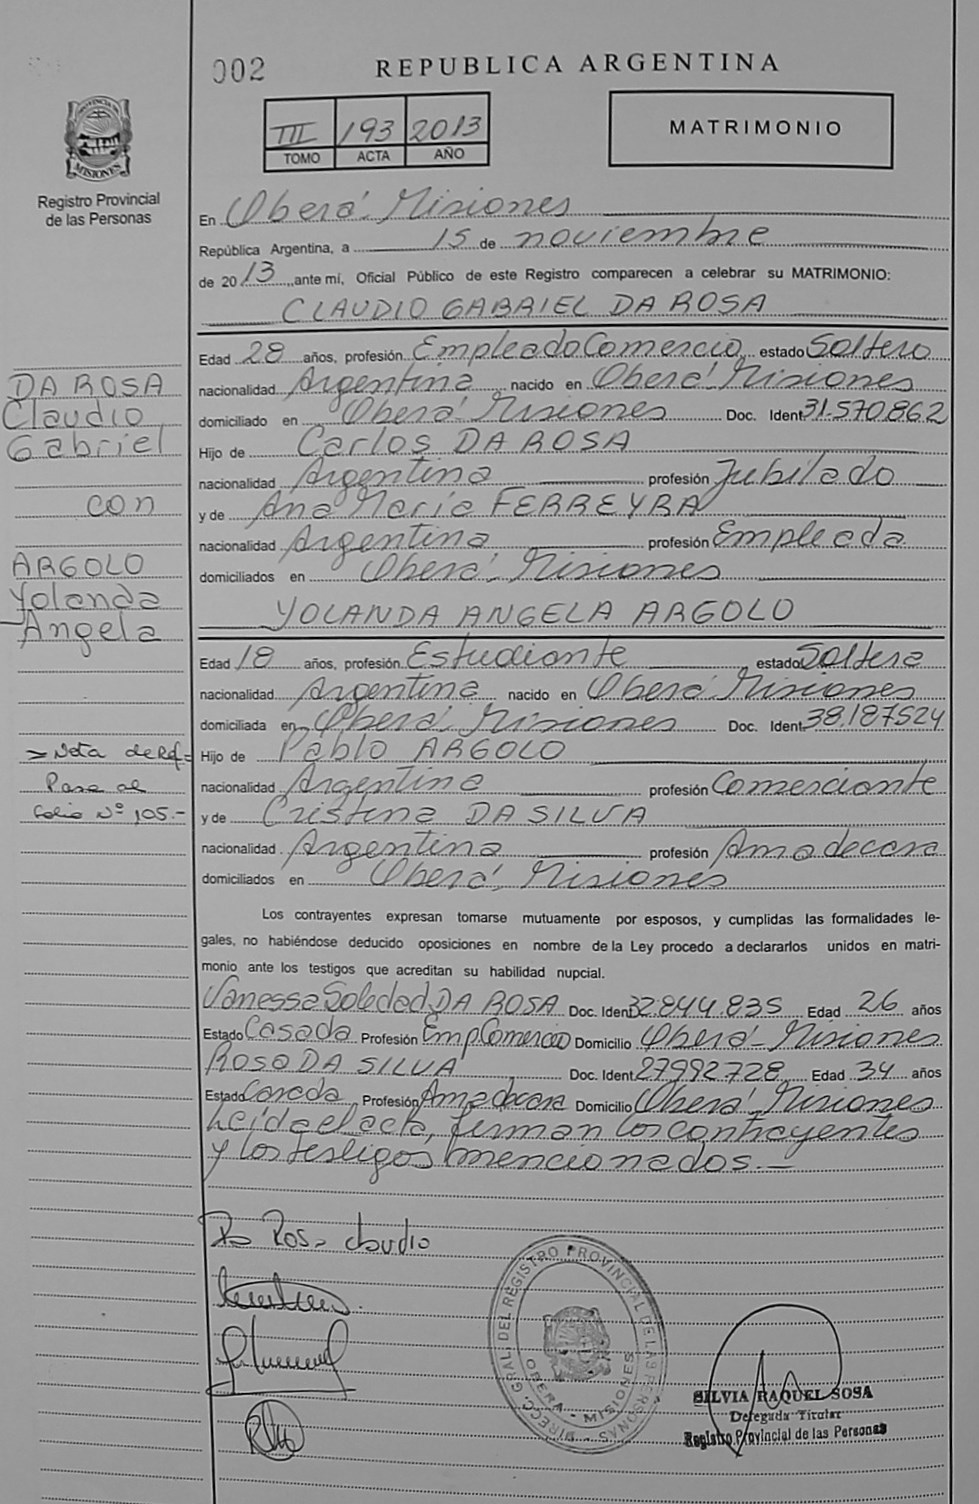 002
REPUBLICA ARGENTINA
III 193 2013
TOMO ACTA AÑO
MATRIMONIO
PROVINCIA DE MISIONES
Registro Provincial
de las Personas
En Oberá - Misiones
República Argentina, a 15 de noviembre
de 2013, ante mí, Oficial Público de este Registro comparecen a celebrar su MATRIMONIO:
CLAUDIO GABRIEL DA ROSA
Edad 28 años, profesión Empleado Comercio, estado Soltero
nacionalidad Argentina nacido en Oberá - Misiones
domiciliado en Oberá - Misiones Doc. Ident 31.570.862
Hijo de Carlos DA ROSA
nacionalidad Argentina profesión Jubilado
y de Ana María FERREYRA
nacionalidad Argentina profesión Empleada
domiciliados en Oberá - Misiones
YOLANDA ANGELA ARGOLO
Edad 18 años, profesión Estudiante estado Soltera
nacionalidad Argentina nacido en Oberá - Misiones
domiciliada en Oberá - Misiones Doc. Ident. 38.187524
Hijo de Pablo ARGOLO
nacionalidad Argentina profesión Comerciante
y de Cristina DA SILVA
nacionalidad Argentina profesión Ama de casa
domiciliados en Oberá - Misiones
DA ROSA
Claudio
Gabriel
con
ARGOLO
Yolanda
Angela
Nota de Ref=
Pasa al
folio Nº 105.-
Los contrayentes expresan tomarse mutuamente por esposos, y cumplidas las formalidades le-
gales, no habiéndose deducido oposiciones en nombre de la Ley procedo a declararlos unidos en matri-
monio ante los testigos que acreditan su habilidad nupcial.
Vanessa Soledad DA ROSA Doc. Ident 32.844.835 Edad 26 años
Estado Casada Profesión Emp Comercio Domicilio Oberá - Misiones
Rosa DA SILVA Doc. Ident. 27992.728 Edad 34 años
Estado Casada Profesión Ama de casa Domicilio Oberá - Misiones
Leída el acta, firman los contrayentes
y los testigos mencionados.-
Da Rosa Claudio
DIRECC. GRAL. DEL REGISTRO PROVINCIAL DE LAS PERSONAS
OBERA - MISIONES
SILVIA RAQUEL SOSA
Delegada Titular
Registro Provincial de las Personas